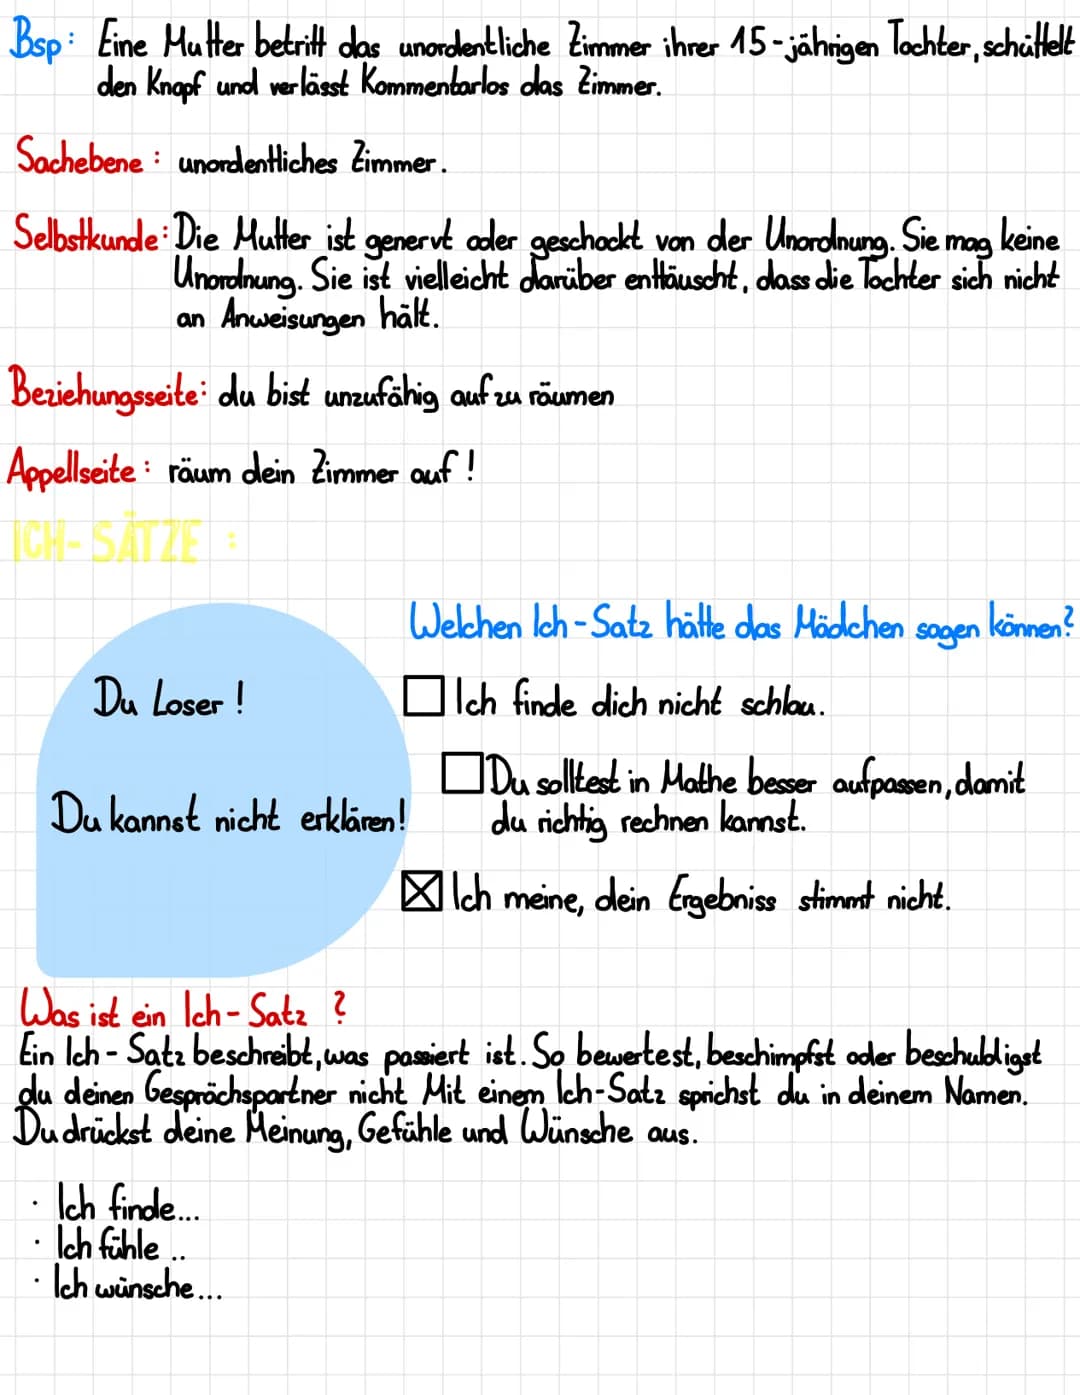 Bsp: Eine Mutter betritt das unordentliche Zimmer ihrer 15-jährigen Tochter, schüttelt
den Knopf und verlässt Kommentarlos das Zimmer.
Sachebene: unordentliches Zimmer.
Selbstkunde: Die Mutter ist genervt oder geschockt von der Unordnung. Sie mag keine
Unordnung. Sie ist vielleicht darüber enttäuscht, dass die Tochter sich nicht
an Anweisungen hält.
Beziehungsseite: du bist unzufähig aufzu räumen
Appellseite: räum dein Zimmer auf!
ICH-SÄTZE :
Welchen Ich-Satz hätte das Mädchen sagen können?
Du Loser!
Ich finde dich nicht schlau.
Du solltest in Mathe besser aufpassen, damit
du richtig rechnen kannst.
Du kannst nicht erklären!
Ich meine, dein Ergebniss stimmt nicht.
Was ist ein Ich-Satz ?
Ein Ich-Satz beschreibt, was passiert ist. So bewertest, beschimpfst oder beschuldigst
du deinen Gesprächspartner nicht Mit einem Ich-Satz sprichst du in deinem Namen.
Du drückst deine Meinung, Gefühle und Wünsche aus.
· Ich finde...
· Ich fühle ..
· Ich wünsche...